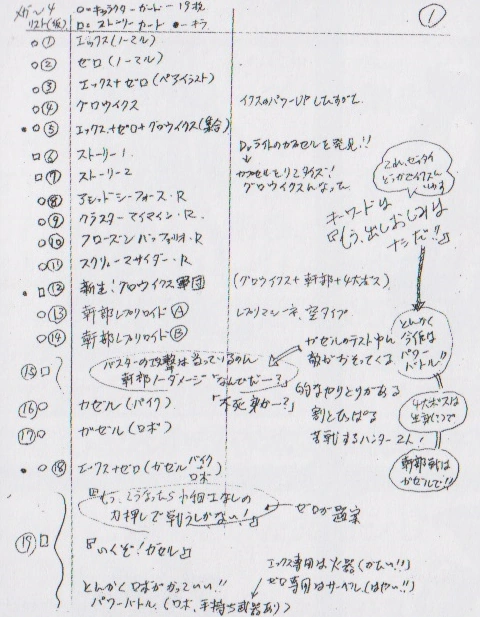 メガ〜4
リスト(仮)
○=キャラクターカード―19枚
□=ストーリーカード ●=キラ
①
○① エックス(ノーマル)
○② ゼロ(ノーマル)
○③ エックス+ゼロ(ペアイラスト)
○④ グロウイクス
イクスのパワーUPしたすがた
●○⑤ エックス+ゼロ+グロウイクス(集合)
□⑥ ストーリー1.
Drライトのカプセルを発見!!
□⑦ ストーリー2
カプセルをリミタイズ!
グロウイクスになって
キーワードは
『もう、出しおしみは
ナシだ!!』
○⑧ アシッドシーフォース・R
○⑨ クラスターマイマイン・R
○⑩ フローズンバッファリオ・R
○⑪ スクリューマサイダー・R
●□⑫ 新生!グロウイクス軍団
(グロウイクス+幹部+4大ボス)
○⑬ 幹部レプリロイドⒶ
○⑭ 幹部レプリロイドⒷ
とにかく
今作は
パワー
バトル!!
⑮□
バスターの攻撃は当っているのに
幹部ノーダメージ『なんだ―?』
『不死身か―?』
的なやりとりがある
割とひっぱる
苦戦するハンター2人!
⑯○ ガゼル(バイク)
⑰○ ガゼル(ロボ)
4大ボスは
幹部戦は
ガゼルで!!
●○⑱ エックス+ゼロ(ガゼルバイク ロボ)
『もう、こうなったら小細工なしの
力押しで戦うしかない!』
ゼロが提案
⑲□
『いくぞ!ガゼル』
エックス専用は火器(かたい!!)
ゼロ専用はサーベル(はやい!!)
とにかくロボがかっていい!!
パワーバトル.(ロボ、手持ち武器あり)